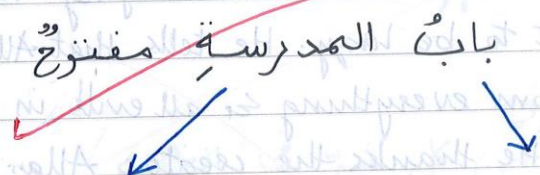 بابُ المدرسةِ مفتوحٌ